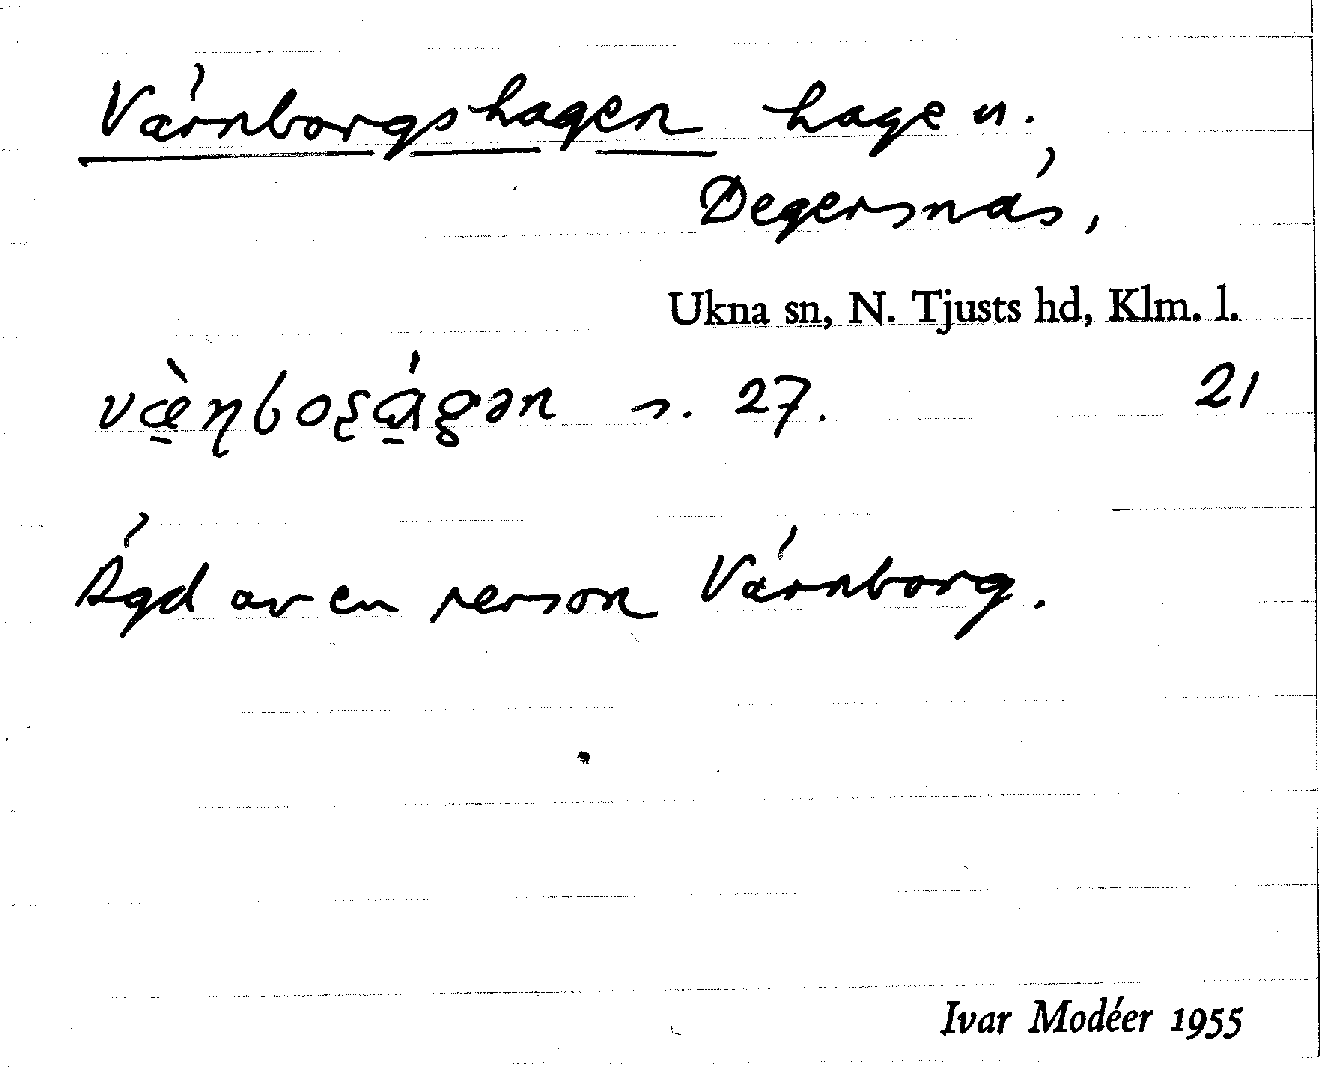 Värnborgshagen hage u.
Degersnäs,
Ukna sn, N. Tjusts hd, Klm. l.
s. 27. 21
Ägd av en person Värnborg.
Ivar Modéer 1955